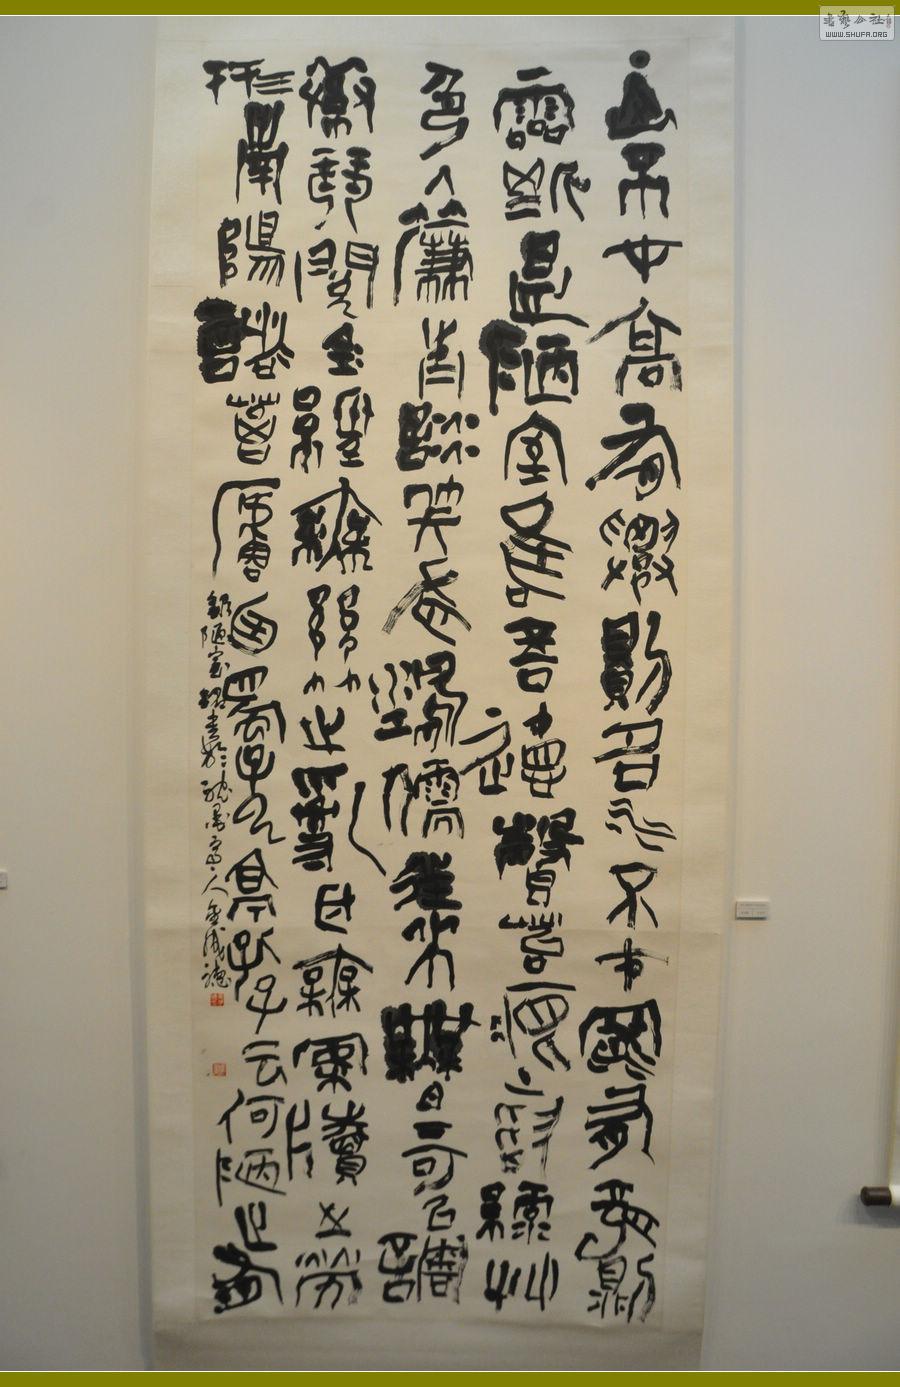 山不在高有僊則名水不在深有龍則
靈斯是陋室惟吾德馨苔痕上階綠艸
色入簾青談笑有鴻儒往來無白丁可以調
素琴閱金經無絲竹之亂耳無案牘之勞
形南陽諸葛廬西蜀子云亭孔子云何陋之有
錄陋室銘書於
書藝公社
WWW.SHUFA.ORG